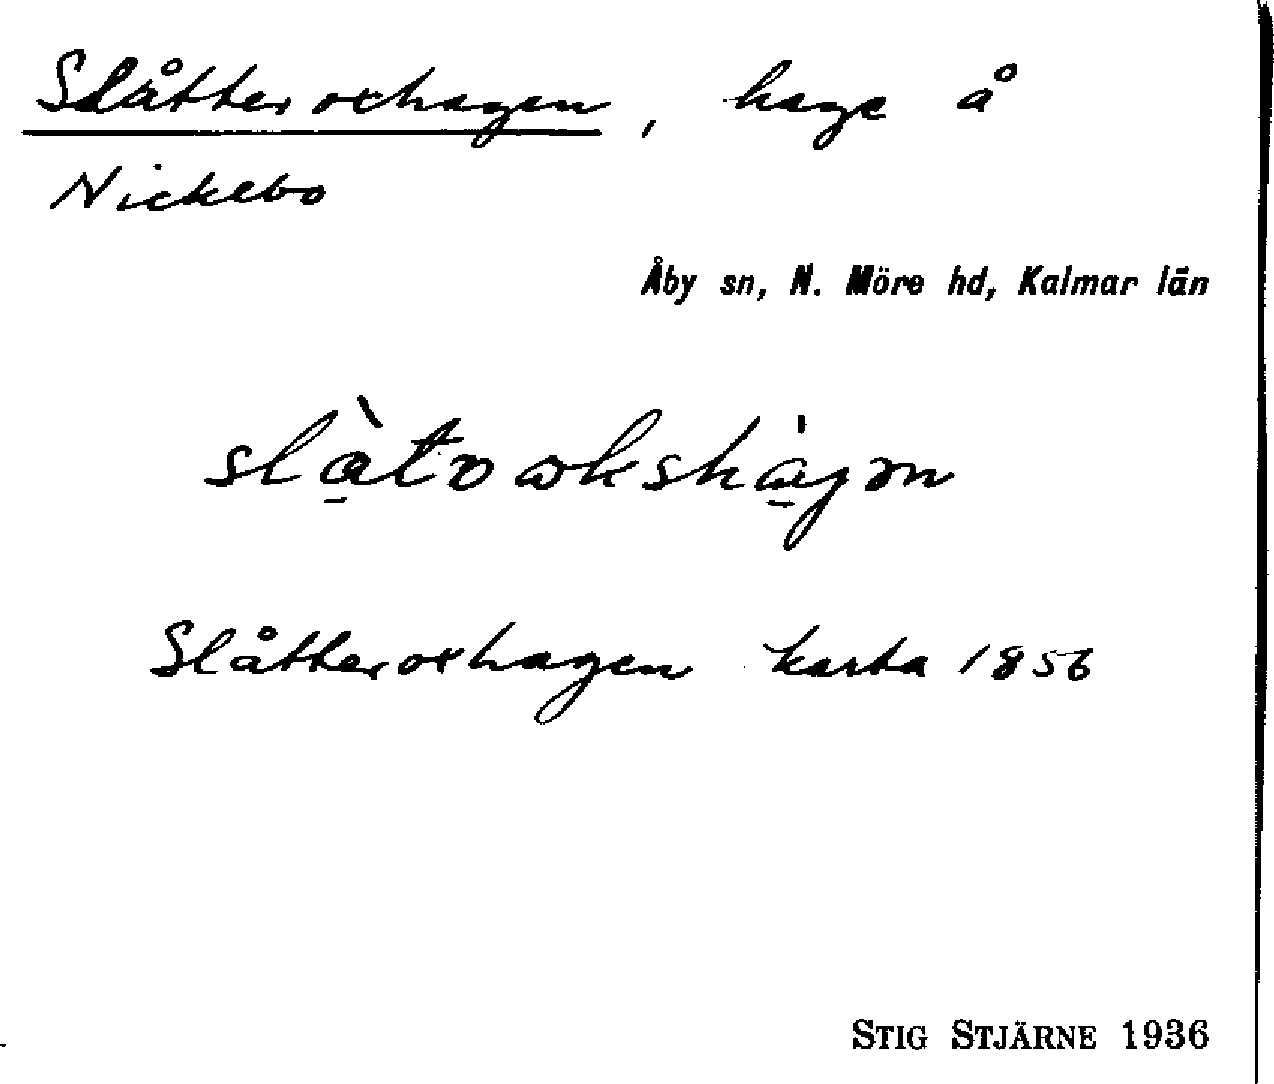 Slåtteroxhagen, hage å
Nickebo
Åby sn, N. Möre hd, Kalmar län
Slåtteroxhagen karta 1856
STIG STJÄRNE 1936